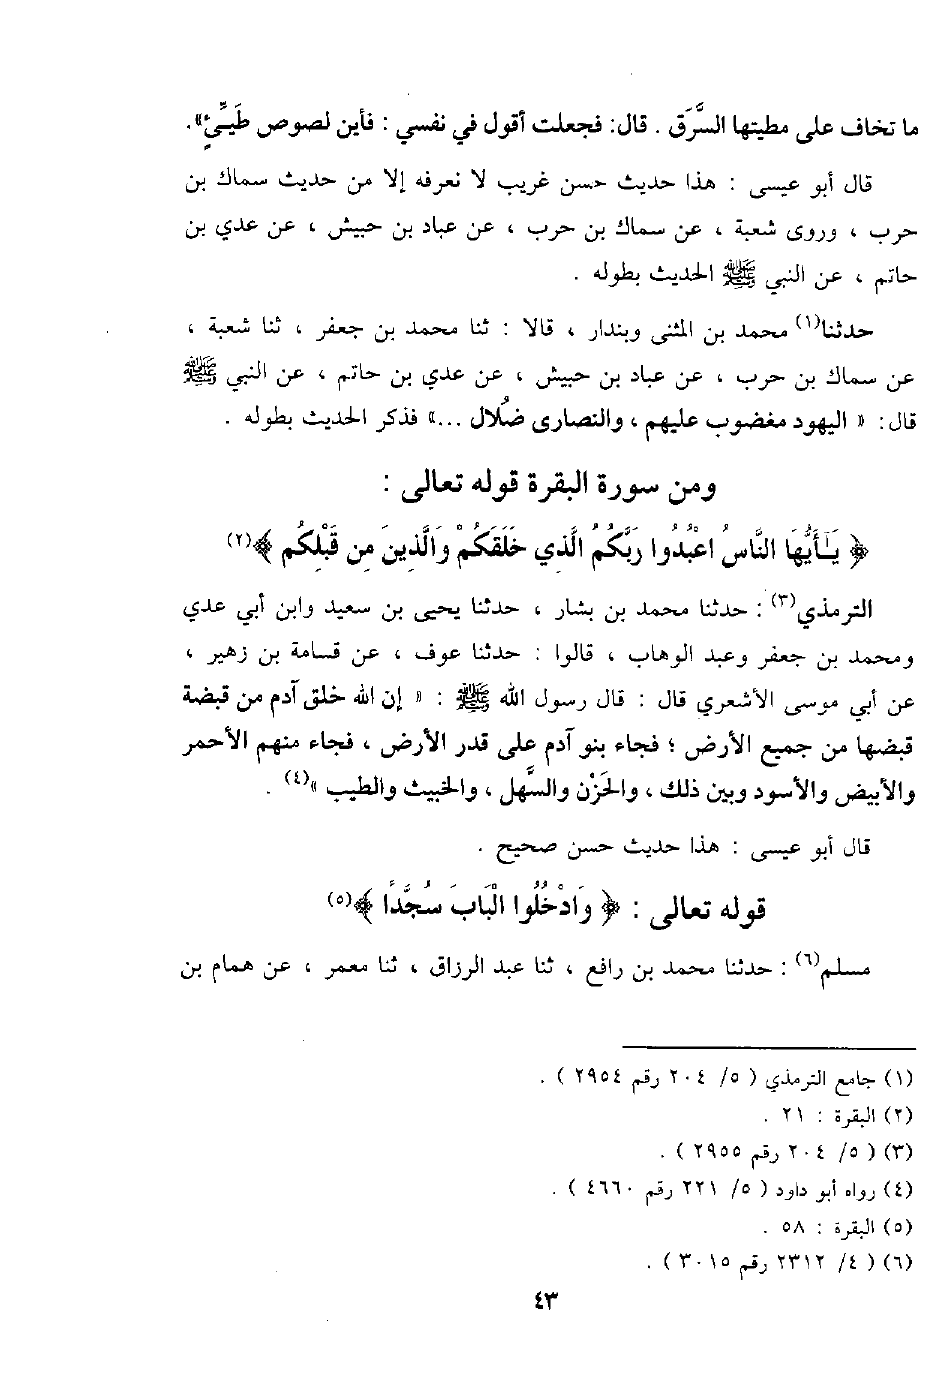 ما تخاف على مطيتها السَّرَق . قال: فجعلت أقول في نفسي : فأين لصوص طَيِّئٍ» .
قال أبو عيسى : هذا حديث حسن غريب لا نعرفه إلا من حديث سماك بن
حرب ، وروى شعبة ، عن سماك بن حرب ، عن عباد بن حبيش ، عن عدي بن
حاتم ، عن النبي ﷺ الحديث بطوله .
حدثنا(١) محمد بن المثنى وبندار ، قالا : ثنا محمد بن جعفر ، ثنا شعبة ،
عن سماك بن حرب ، عن عباد بن حبيش ، عن عدي بن حاتم ، عن النبي ﷺ
قال: « اليهود مغضوب عليهم ، والنصارى ضُلال ...» فذكر الحديث بطوله .
ومن سورة البقرة قوله تعالى :
﴿ يَـٰٓأَيُّهَا النَّاسُ اعْبُدُوا رَبَّكُمُ الَّذِي خَلَقَكُمْ وَالَّذِينَ مِن قَبْلِكُم ﴾(٢)
الترمذي(٣) : حدثنا محمد بن بشار ، حدثنا يحيى بن سعيد وابن أبي عدي
ومحمد بن جعفر وعبد الوهاب ، قالوا : حدثنا عوف ، عن قسامة بن زهير ،
عن أبي موسى الأشعري قال : قال رسول الله ﷺ : « إن الله خلق آدم من قبضة
قبضها من جميع الأرض ؛ فجاء بنو آدم على قدر الأرض ، فجاء منهم الأحمر
والأبيض والأسود وبين ذلك ، والحَزْن والسَّهل ، والخبيث والطيب »(٤) .
قال أبو عيسى : هذا حديث حسن صحيح .
قوله تعالى : ﴿ وَادْخُلُوا الْبَابَ سُجَّدًا ﴾(٥)
مسلم(٦) : حدثنا محمد بن رافع ، ثنا عبد الرزاق ، ثنا معمر ، عن همام بن
(١) جامع الترمذي ( ٥/ ٢٠٤ رقم ٢٩٥٤ ) .
(٢) البقرة : ٢١ .
(٣) ( ٥/ ٢٠٤ رقم ٢٩٥٥ ) .
(٤) رواه أبو داود ( ٥/ ٢٢١ رقم ٤٦٦٠ ) .
(٥) البقرة : ٥٨ .
(٦) ( ٤/ ٢٣١٢ رقم ٣٠١٥ ) .
٤٣